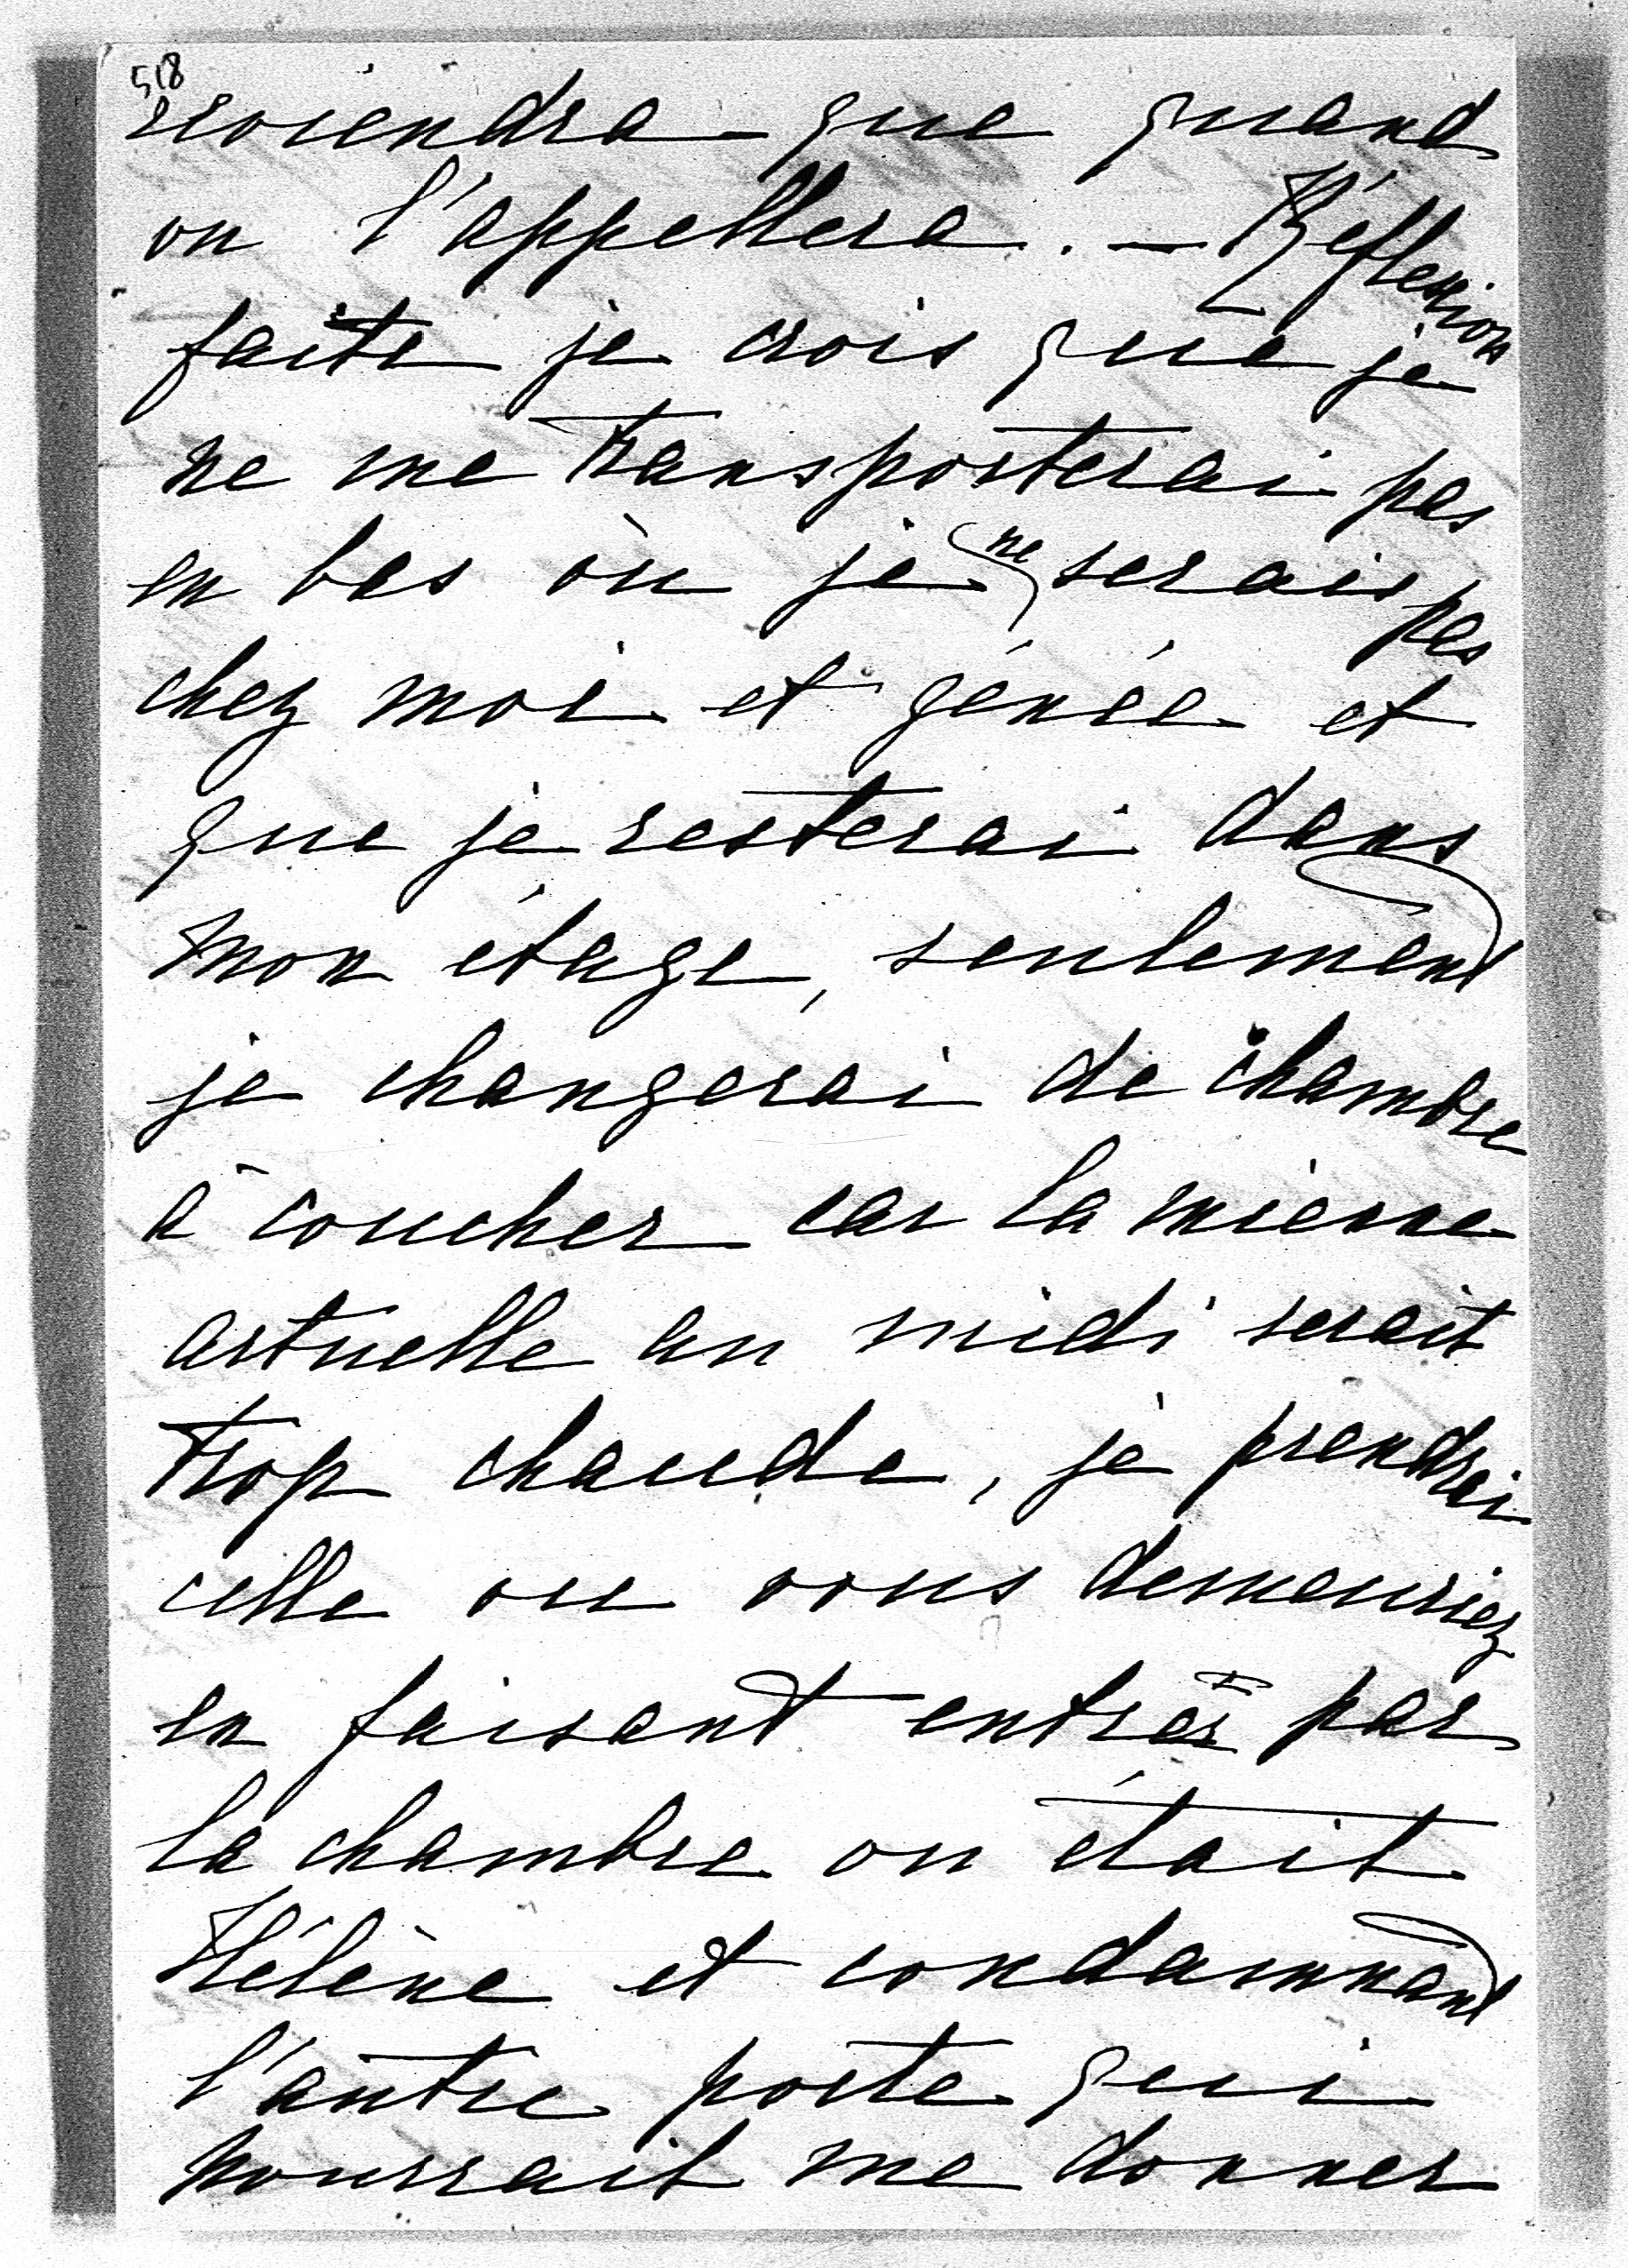 518
reviendra que quand
on l'appellera. — Réflexion
faite je crois que je
ne me transporterai pas
en bas où je ne serais pas
chez moi et génée et
que je resterai dans
mon étage, seulement
je changerai de chambre
à coucher car la mienne
actuelle au midi serait
trop chaude, je prendrai
celle ou vous demeuriez
en faisant entrer par
la chambre ou était
Hélène et condamnant
l'autre porte qui
pourrait me donner